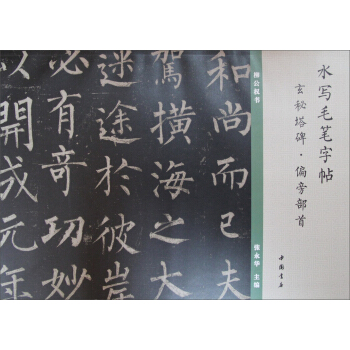 水写毛笔字帖
玄秘塔碑·偏旁部首
中国书店
柳公权书
张永华 主编
和尚而已夫
駕横海之大
迷途於彼岸
必有奇功妙
以開成元年